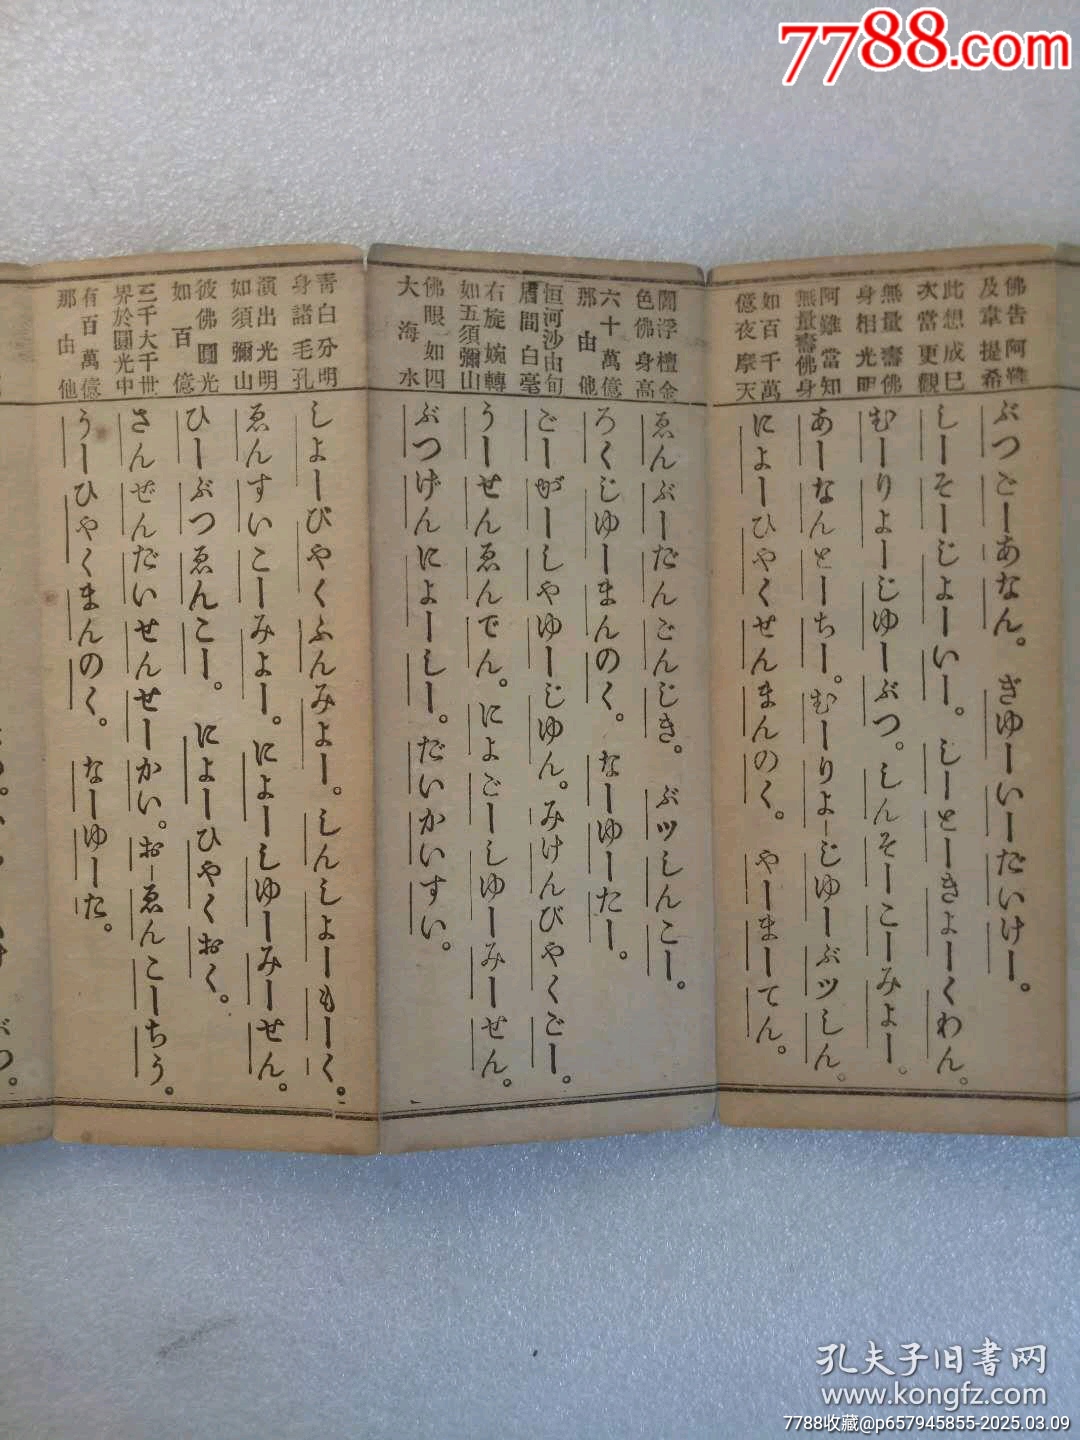 7788.com
佛告阿難
及韋提希
ぶつごーあなん。ぎゆーいーだいけー。
此想成巳
次當更觀
しーそーじよーいー。しーとーきよーくわん。
無量壽佛
身相光明
むーりよーじゆーぶつ。しんそーこーみよー。
阿難當知
無量壽佛身
あーなんとーちー。むーりよーじゆーぶツしん。
如百千萬
億夜摩天
によーひやくせんまんのく。やーまーてん。
閻浮檀金
色佛身高
ゑんぶーだんごんじき。ぶツしんこー。
六十萬億
那由他
ろくじゆーまんのく。なーゆーたー。
恒河沙由旬
眉間白毫
ごーがーしやゆーじゆん。みけんびやくごー。
右旋婉轉
如五須彌山
うーせんゑんでん。によごーしゆーみーせん。
佛眼如四
大海水
ぶつげんによーしー。だいかいすい。
靑白分明
身諸毛孔
しよーびやくふんみよー。しんしよーもーく。
演出光明
如須彌山
ゑんすいこーみよー。によーしゆーみーせん。
彼佛圓光
如百億
ひーぶつゑんこー。によーひやくおく。
三千大千世
界於圓光中
さんぜんだいせんせーかい。おーゑんこーちう。
有百萬億
那由他
うーひやくまんのく。なーゆーた。
孔夫子旧書网
www.kongfz.com
7788收藏@p657945855-2025.03.09